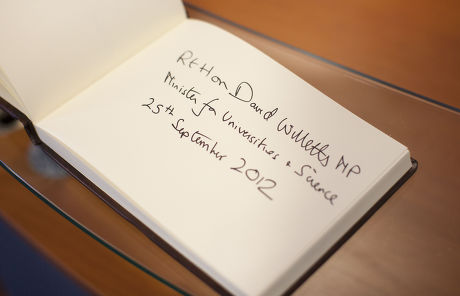 Rt Hon David Willetts MP
Minister for Universities & Science
25th September 2012